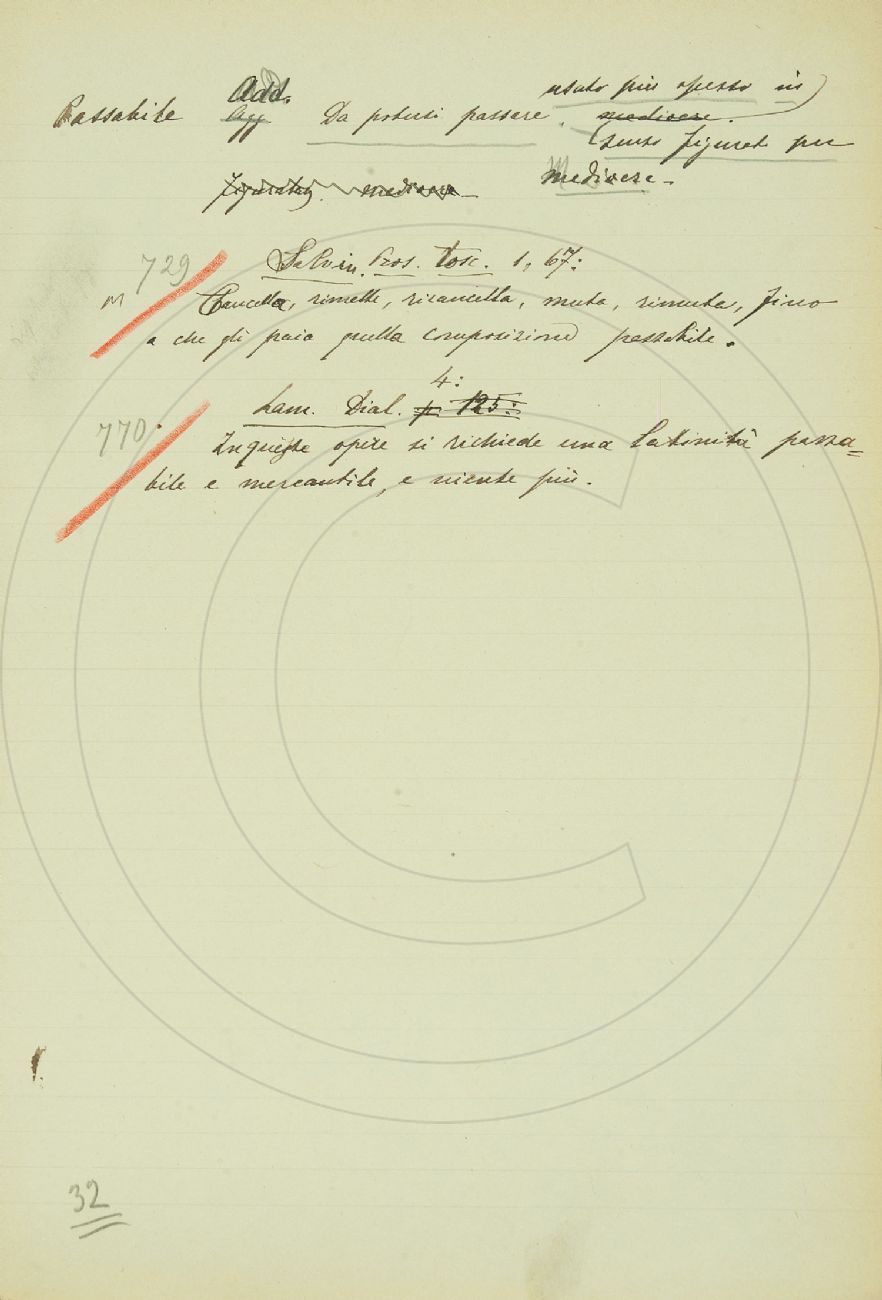 usato più spesso in
Passabile Add. Agg Da potersi passare. mediocre.
senso figurato per
Figuratam. mediocre mediocre.
729 Salvin. Pros. Tosc. 1, 67:
M Cancella, rimette, ricancella, muta, rimuta, fino
a che gli paia quella composizione passabile.
4:
770. Lam. Dial. p. 125:
In queste opere si richiede una latinità passa=
bile e mercantile, e niente più.
32